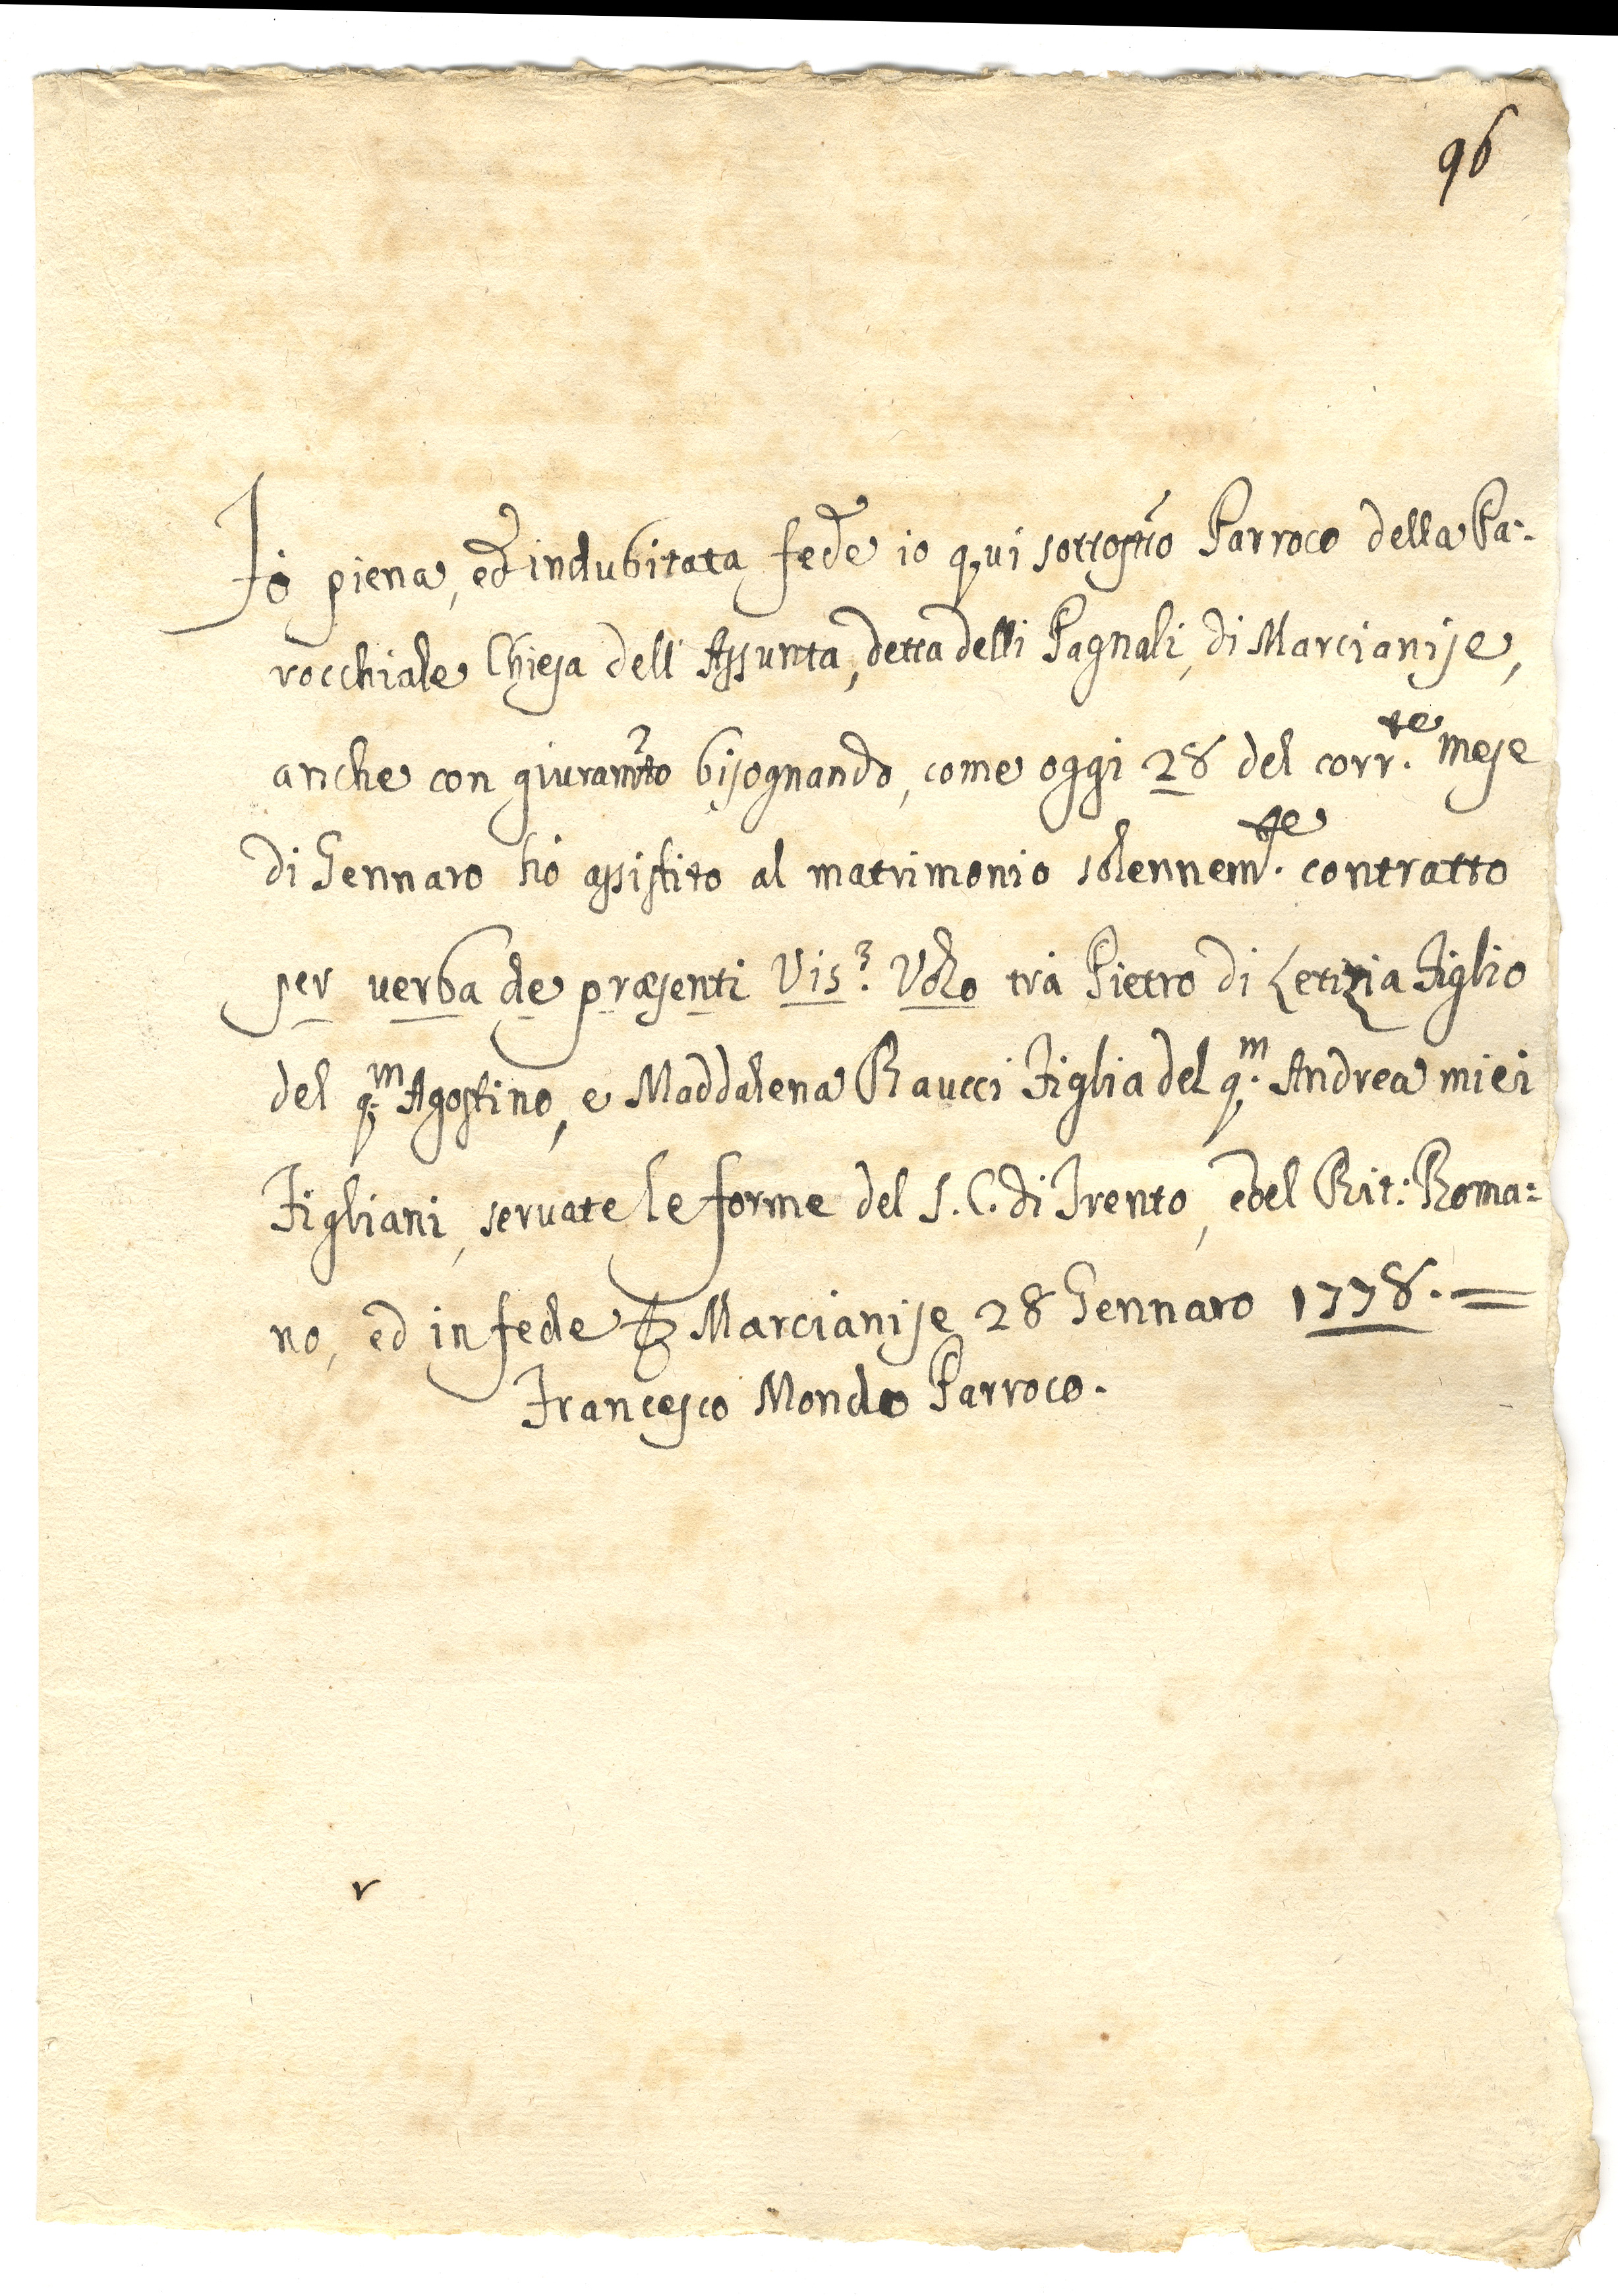 96
Fò piena, ed indubitata fede io qui sottostto Parroco della Pa:
rocchiale Chiesa dell' Assunta, detta delli Pagnali, di Marcianise,
anche con giuramto bisognando, come oggi 28 del corr.te mese
di Gennaro hò assistito al matrimonio solennem.te contratto
per verba de præsenti Vis? Volo trà Pietro di Letizia Figlio
del q.m Agostino, e Maddalena Raucci Figlia del q.m Andrea miei
Figliani, servate le forme del S. C. di Trento, e del Rit: Roma:
no, ed in fede Marcianise 28 Gennaro 1778. =
Francesco Mondo Parroco.